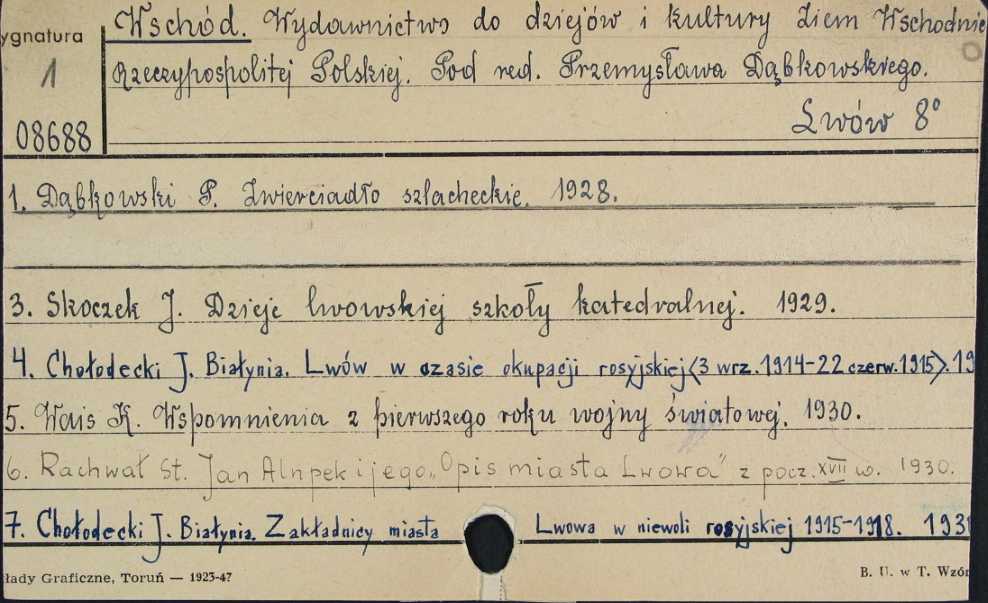 Wschód. Wydawnictwo do dziejów i kultury Ziem Wschodnie
ygnatura
Rzeczypospolitej Polskiej. Pod red. Przemysława Dąbkowskiego.
1
Lwów 8°
08688
1. Dąbkowski P. Zwierciadło szlacheckie. 1928.
3. Skoczek J. Dzieje lwowskiej szkoły katedralnej. 1929.
4. Chołodecki J. Białynia. Lwów w czasie okupacji rosyjskiej (3 wrz. 1914-22 czerw. 1915). 19
5. Wais K. Wspomnienia z pierwszego roku wojny światowej. 1930.
6. Rachwał St. Jan Alnpek i jego „Opis miasta Lwowa" z pocz. XVII w. 1930.
7. Chołodecki J. Białynia. Zakładnicy miasta Lwowa w niewoli rosyjskiej 1915-1918. 193
łady Graficzne, Toruń — 1923-47
B. U. w T. Wzór